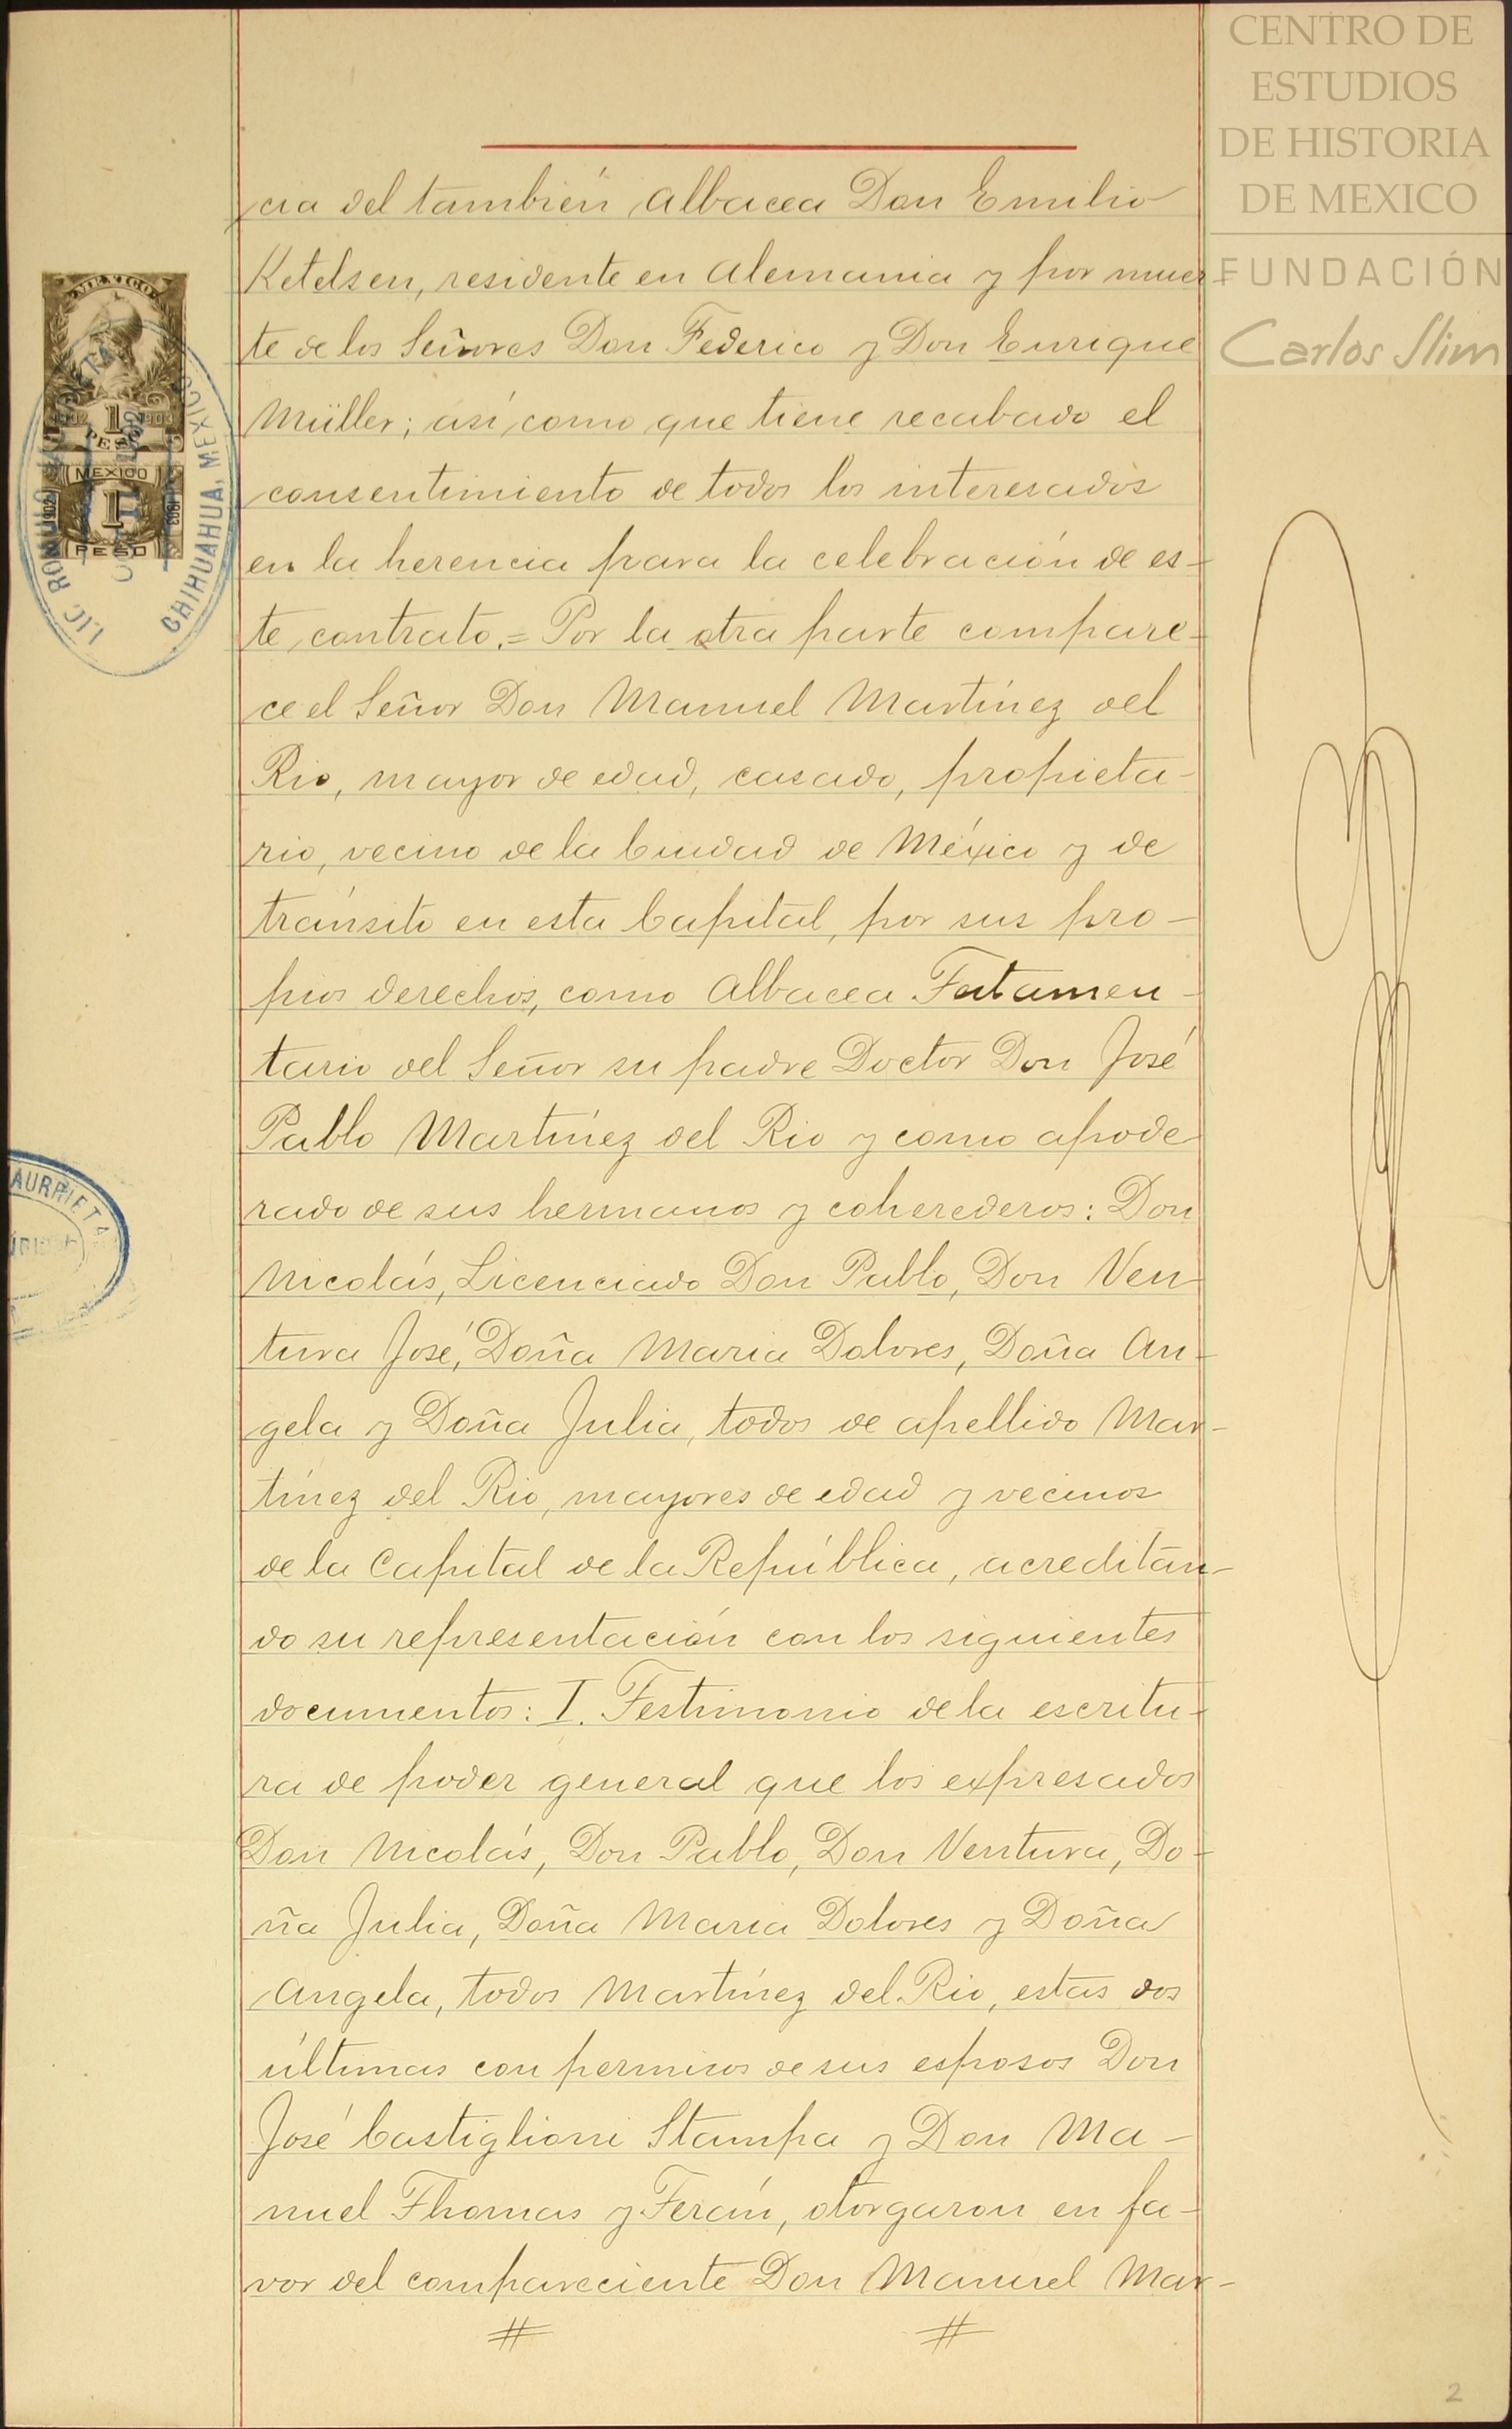 CENTRO DE
ESTUDIOS
DE HISTORIA
DE MEXICO
FUNDACIÓN
Carlos Slim
cia del también Albacea Don Emilio
Ketelsen, residente en Alemania y por muer-
te de los Señores Don Federico y Don Enrique
Müller; así como que tiene recabado el
consentimiento de todos los interesados
en la herencia para la celebración de es-
te contrato.= Por la otra parte compare-
ce el Señor Don Manuel Martínez del
Rio, mayor de edad, casado, propieta-
rio, vecino de la Ciudad de México y de
tránsito en esta Capital, por sus pro-
pios derechos, como Albacea Testamen-
tario del Señor su padre Doctor Don José
Pablo Martínez del Rio y como apode
rado de sus hermanos y coherederos: Don
Nicolás, Licenciado Don Pablo, Don Ven
tura José, Doña Maria Dolores, Doña An-
gela y Doña Julia, todos de apellido Mar-
tínez del Rio, mayores de edad y vecinos
de la Capital de la República, acreditan-
do su representación con los siguientes
documentos: I. Testimonio de la escritu-
ra de poder general que los expresados
Don Nicolás, Don Pablo, Don Ventura, Do-
ña Julia, Doña Maria Dolores y Doña
Angela, todos Martínez del Rio, estas dos
últimas con permisos de sus esposos Don
José Castiglioni Stampa y Don Ma-
nuel Thomas y Terán, otorgaron en fa-
vor del compareciente Don Manuel Mar-
MEXICO
1
PESO
MEXICO
1
PESO
1902
1903
LIC ROMULO
CHIHUAHUA, MEXICO
AURRIETA
2